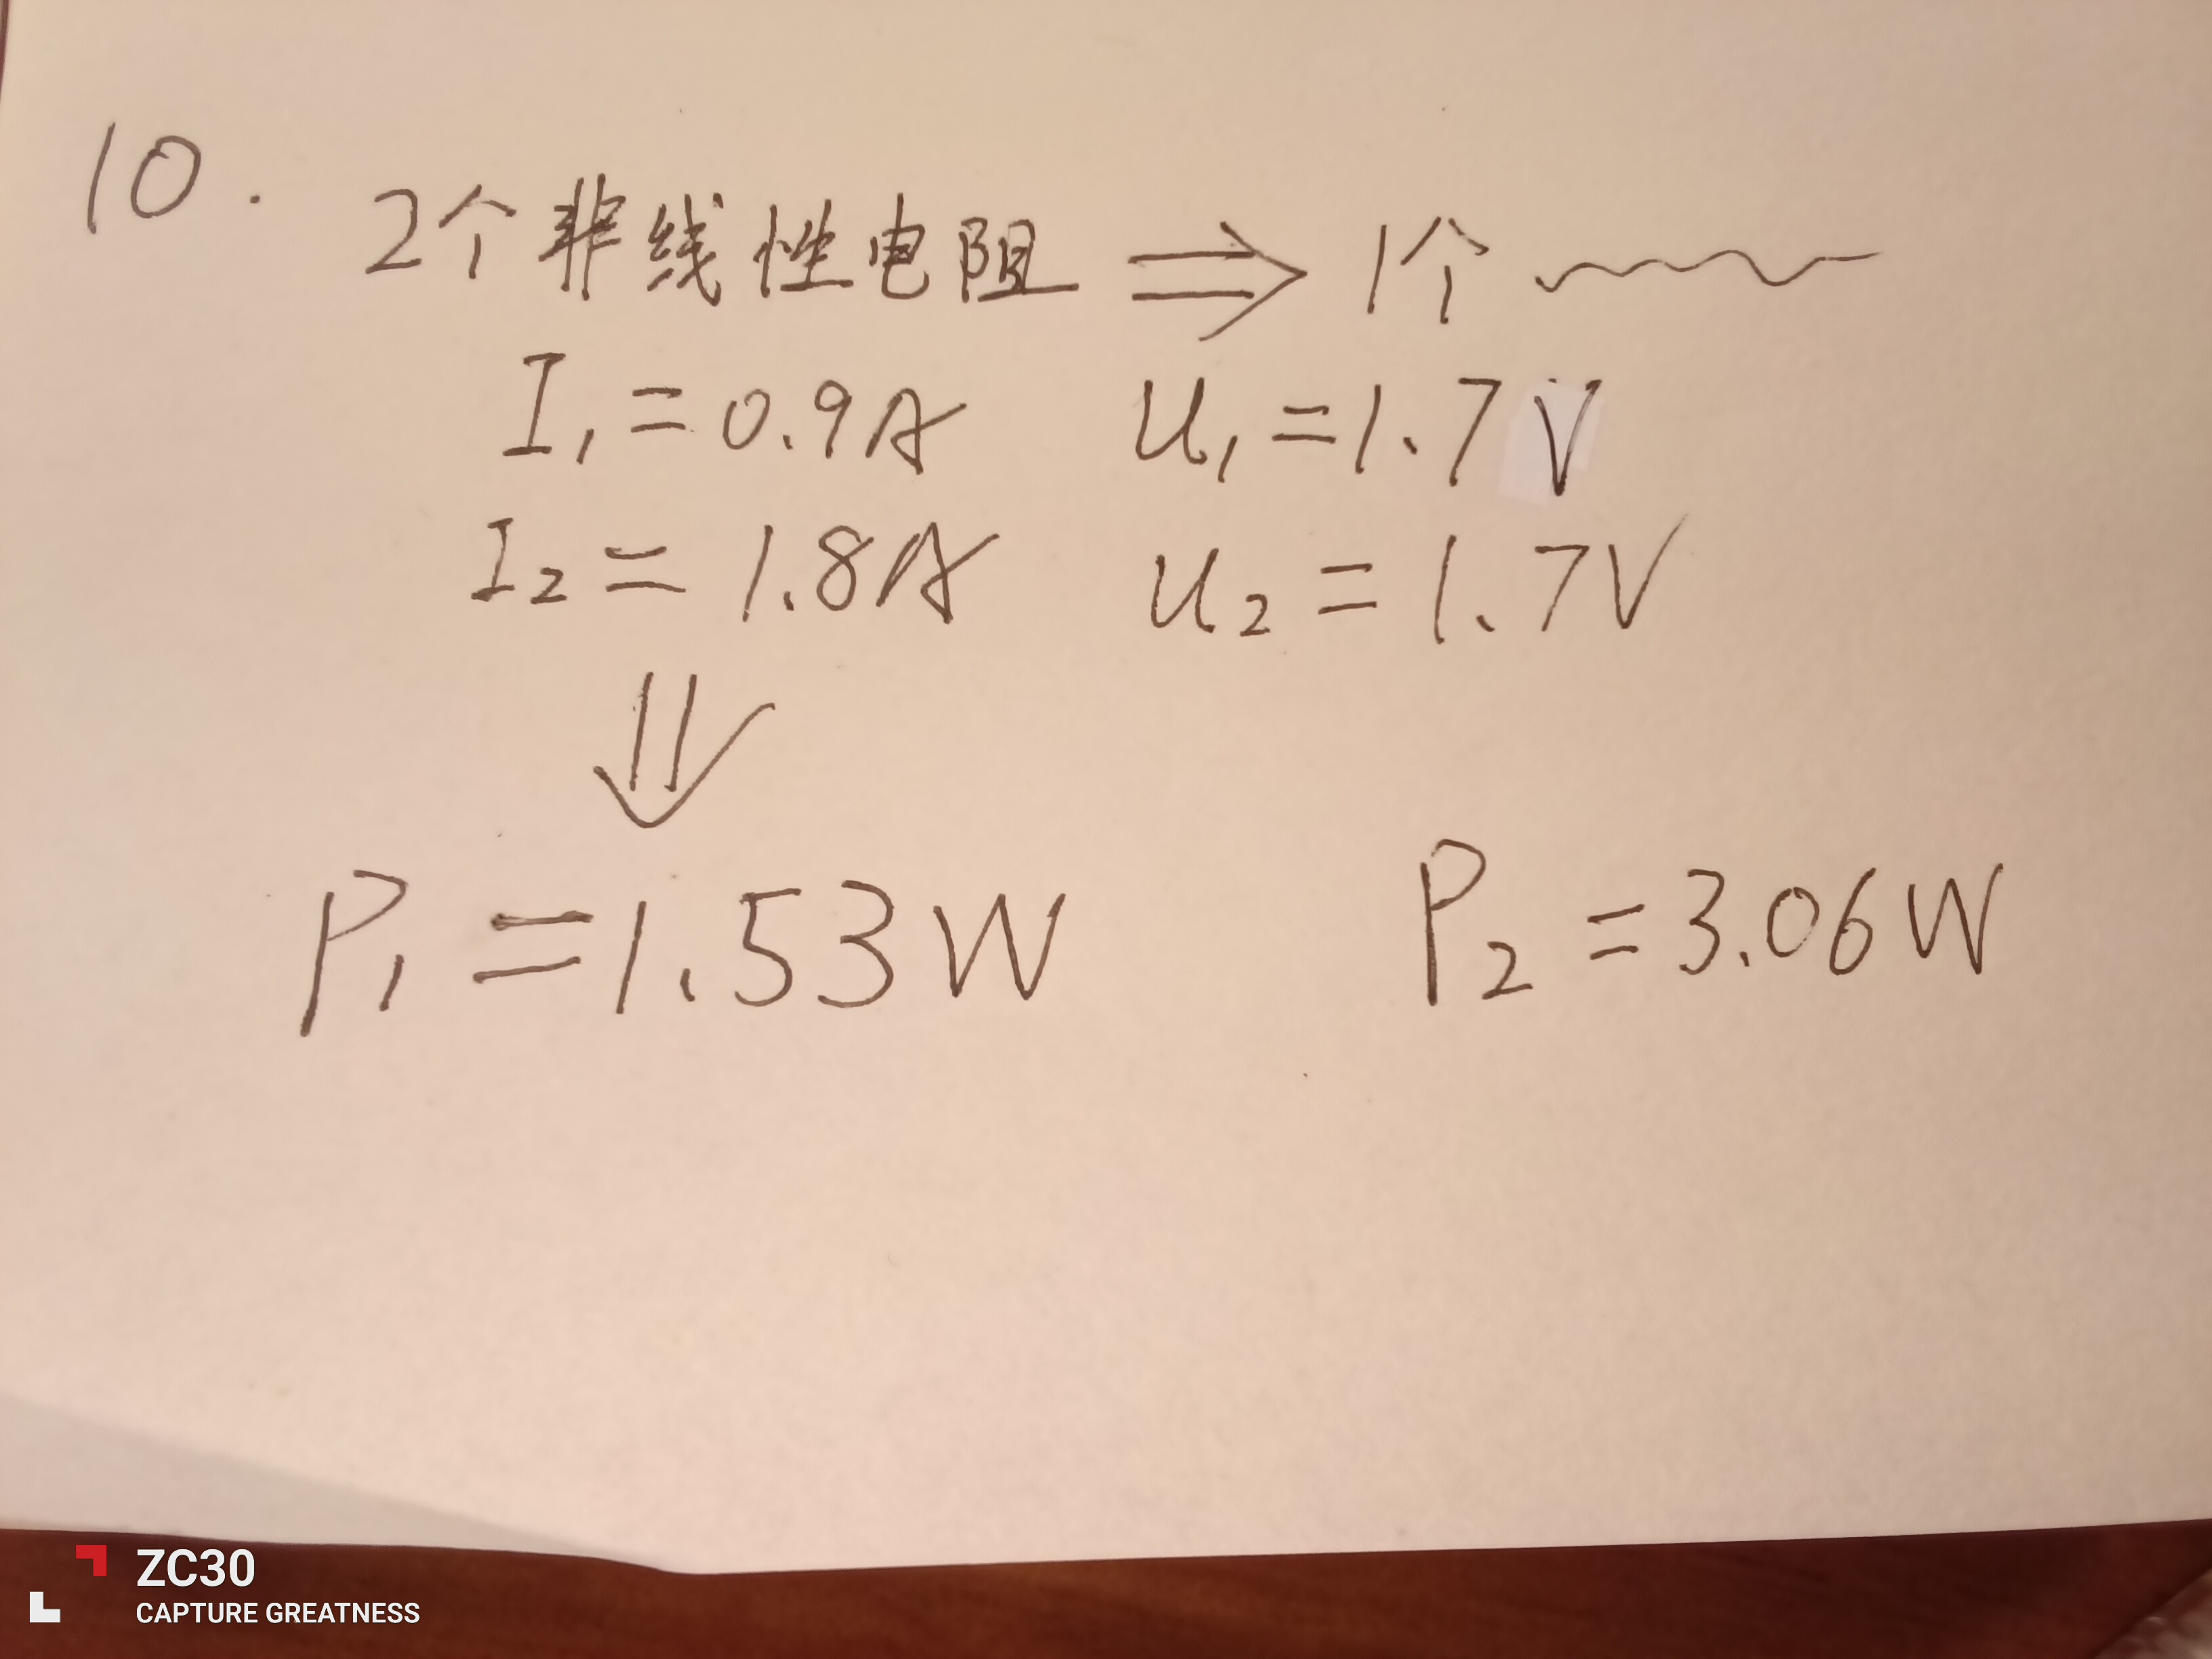 10.
2个非线性电阻 ⇒ 1个
I₁ = 0.9A U₁ = 1.7V
I₂ = 1.8A U₂ = 1.7V
⇓
P₁ = 1.53W P₂ = 3.06W
ZC30
CAPTURE GREATNESS